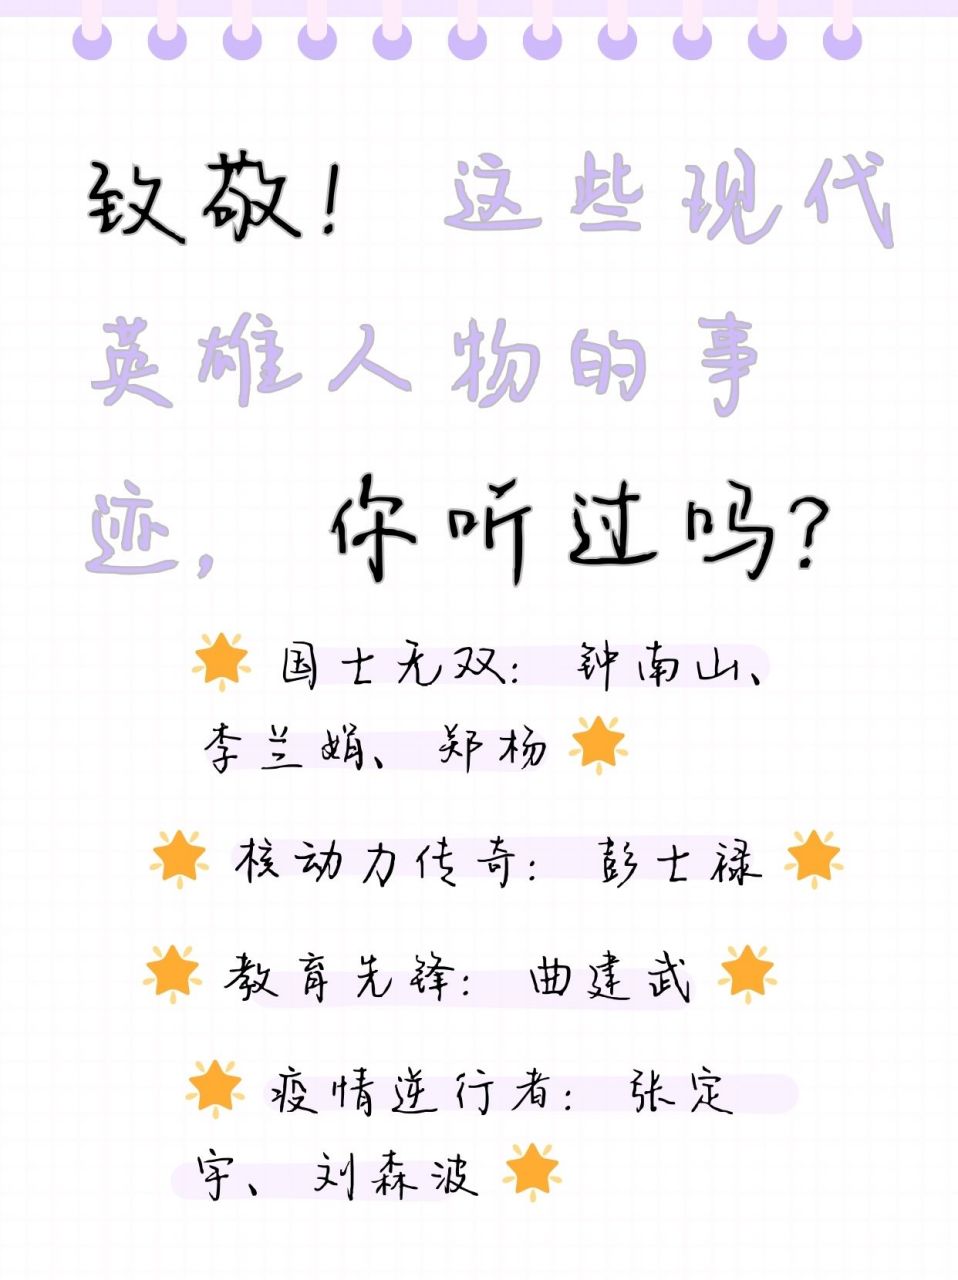 致敬！ 这些现代
英雄人物的事
迹， 你听过吗？
国士无双： 钟南山、
李兰娟、郑杨
核动力传奇： 彭士禄
教育先锋： 曲建武
疫情逆行者： 张定
宇、刘森波